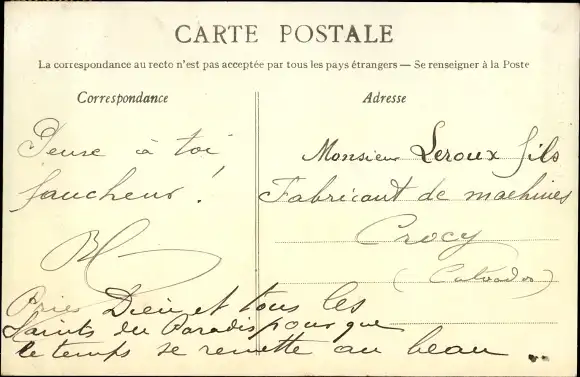 CARTE POSTALE
La correspondance au recto n'est pas acceptée par tous les pays étrangers — Se renseigner à la Poste
Correspondance
Adresse
Pense à toi
faucheur !
Monsieur Leroux fils
Fabricant de machines
Crocy
(Calvados)
Priez Dieu et tous les
Saints du Paradis pour que
le temps se remette au beau